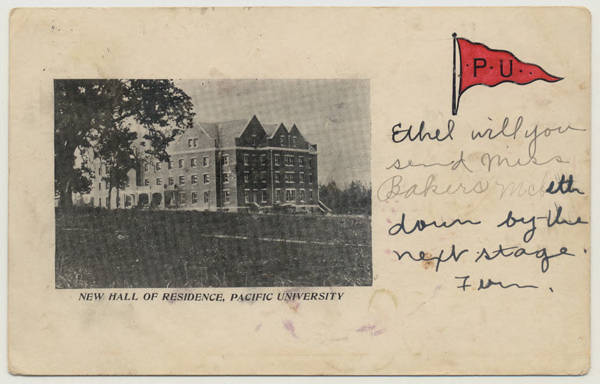 P.U.
Ethel will you
send Miss
Bakers
down by the
next stage.
Fern.
NEW HALL OF RESIDENCE, PACIFIC UNIVERSITY